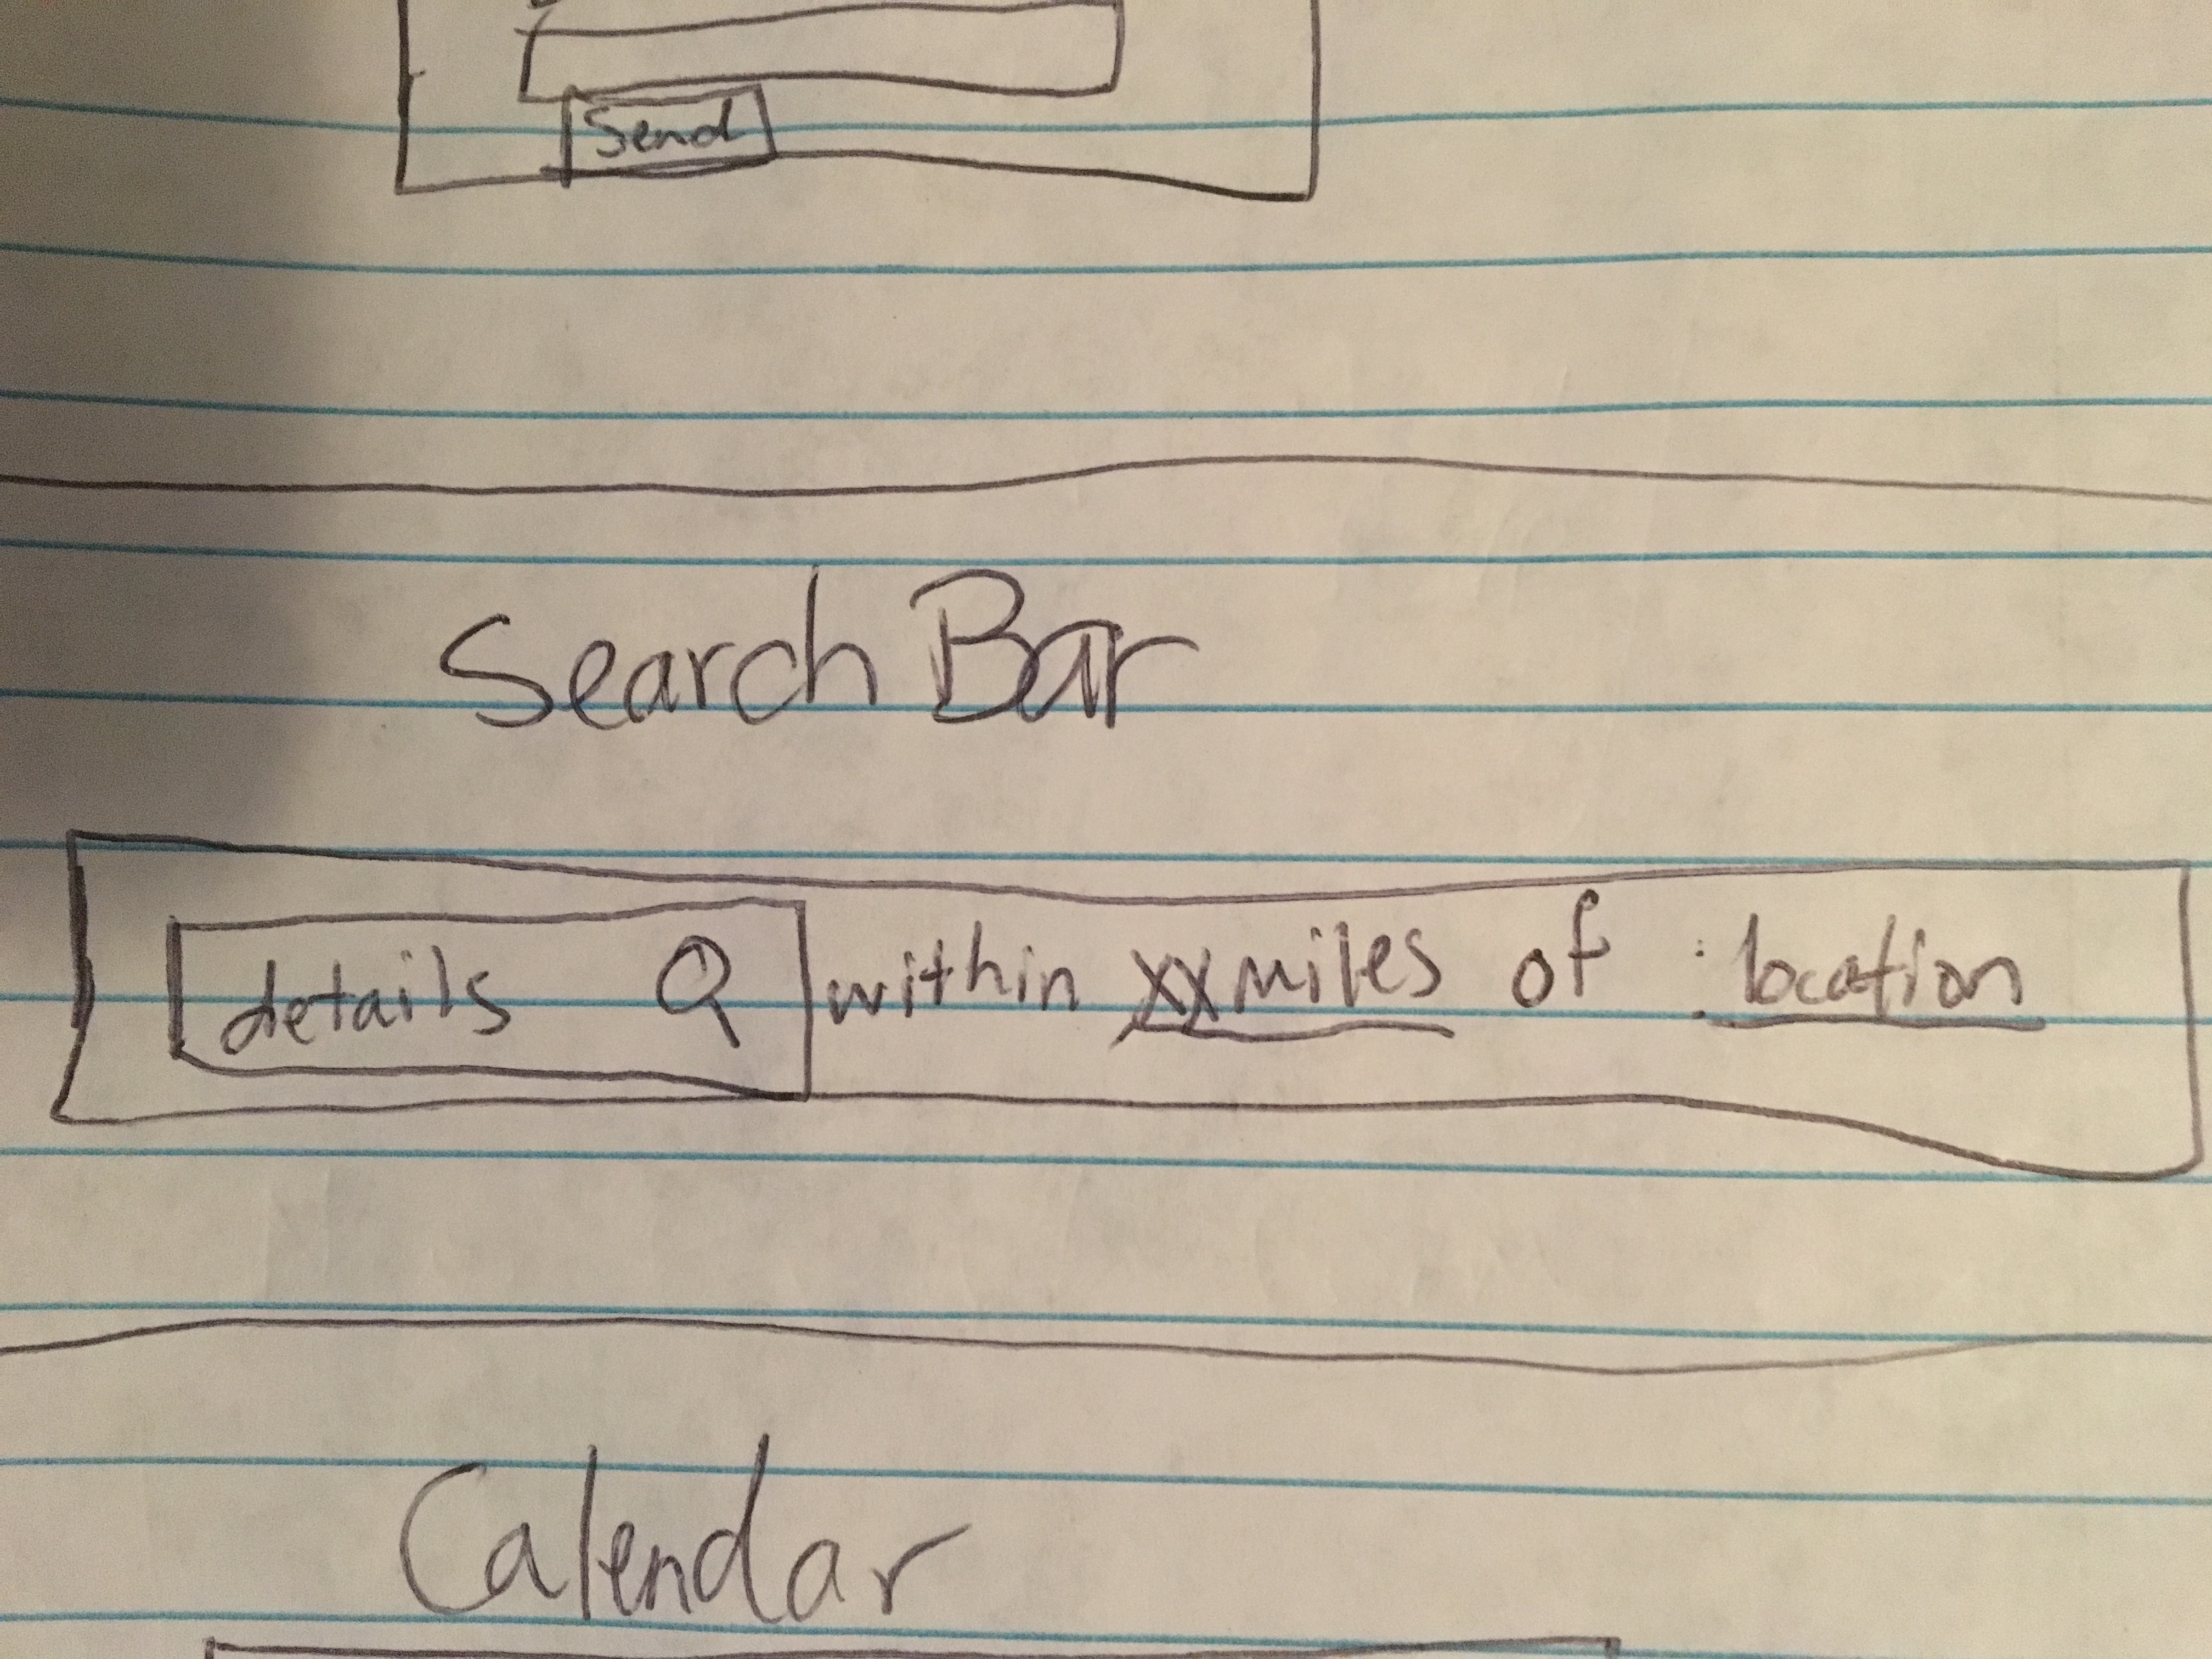 Send
Search Bar
details within xx miles of : location
Calendar